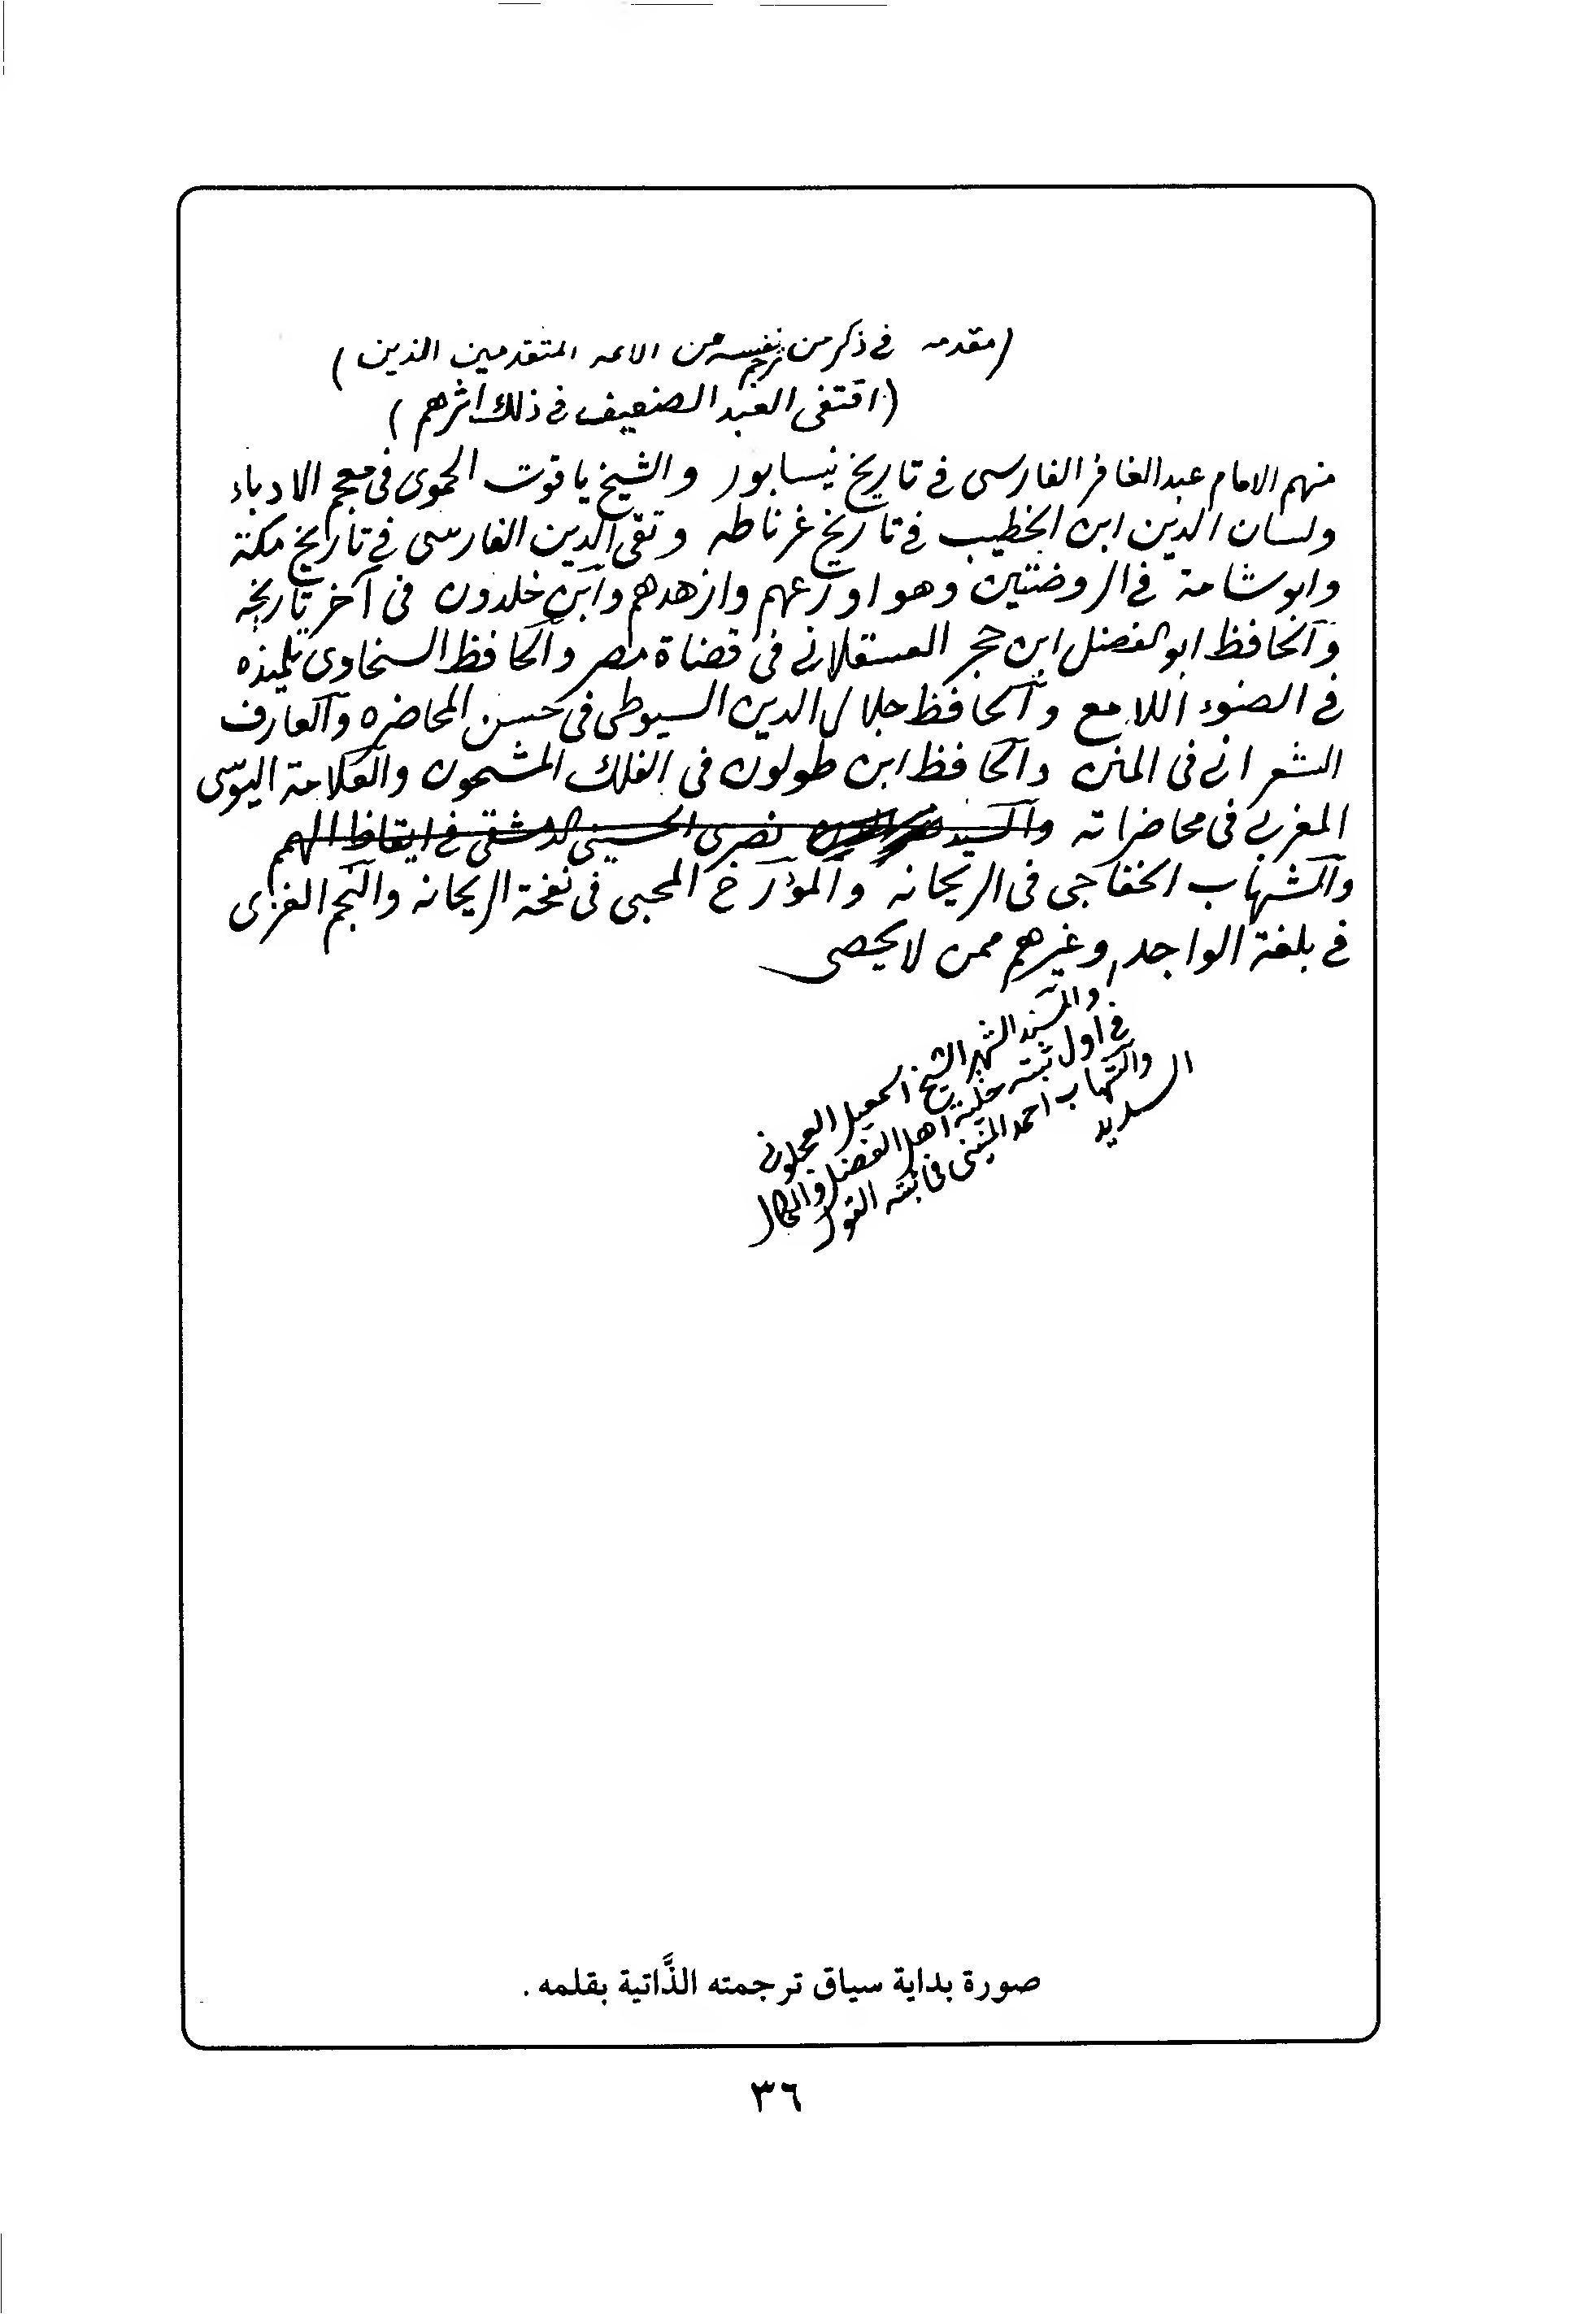 (مقدمه في ذكر من ترجم نفسه من الائمه المتقدمين الذين)
(اقتفى العبد الضعيف في ذلك اثرهم)
منهم الامام عبد الغافر الفارسى في تاريخ نيسابور والشيخ ياقوت الحموى فى معجم الادباء
ولسان الدين ابن الخطيب في تاريخ غرناطه وتقى الدين الفارسى في تاريخ مكة
وابو شامة في الروضتين وهو اورعهم وازهدهم وابن خلدون فى آخر تاريخه
والحافظ ابو الفضل ابن حجر العسقلاني فى قضاة مصر والحافظ السخاوى تلميذه
في الضوء اللامع والحافظ جلال الدين السيوطى فى حسن المحاضره والعارف
الشعراني فى المنن والحافظ ابن طولون فى الفلك المشحون والعلامة اليوسى
المغربي فى محاضراته والسيد نصرى الحسينى الدمشقى في ايقاظ الهمم
والشهاب الخفاجى فى الريحانه والمؤرخ المحبى فى نفحة الريحانه والنجم الغزى
في بلغة الواجد وغيرهم ممن لا يحصى
والمسند الشهير الشيخ اسمعيل العجلوني
في اول ثبته حلية اهل الفضل والكمال
والشهاب احمد المنينى فى ثبته القول
السديد
صورة بداية سياق ترجمته الذَّاتية بقلمه .
٣٦